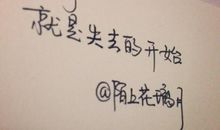 就是失去的开始
@陌上花璃月